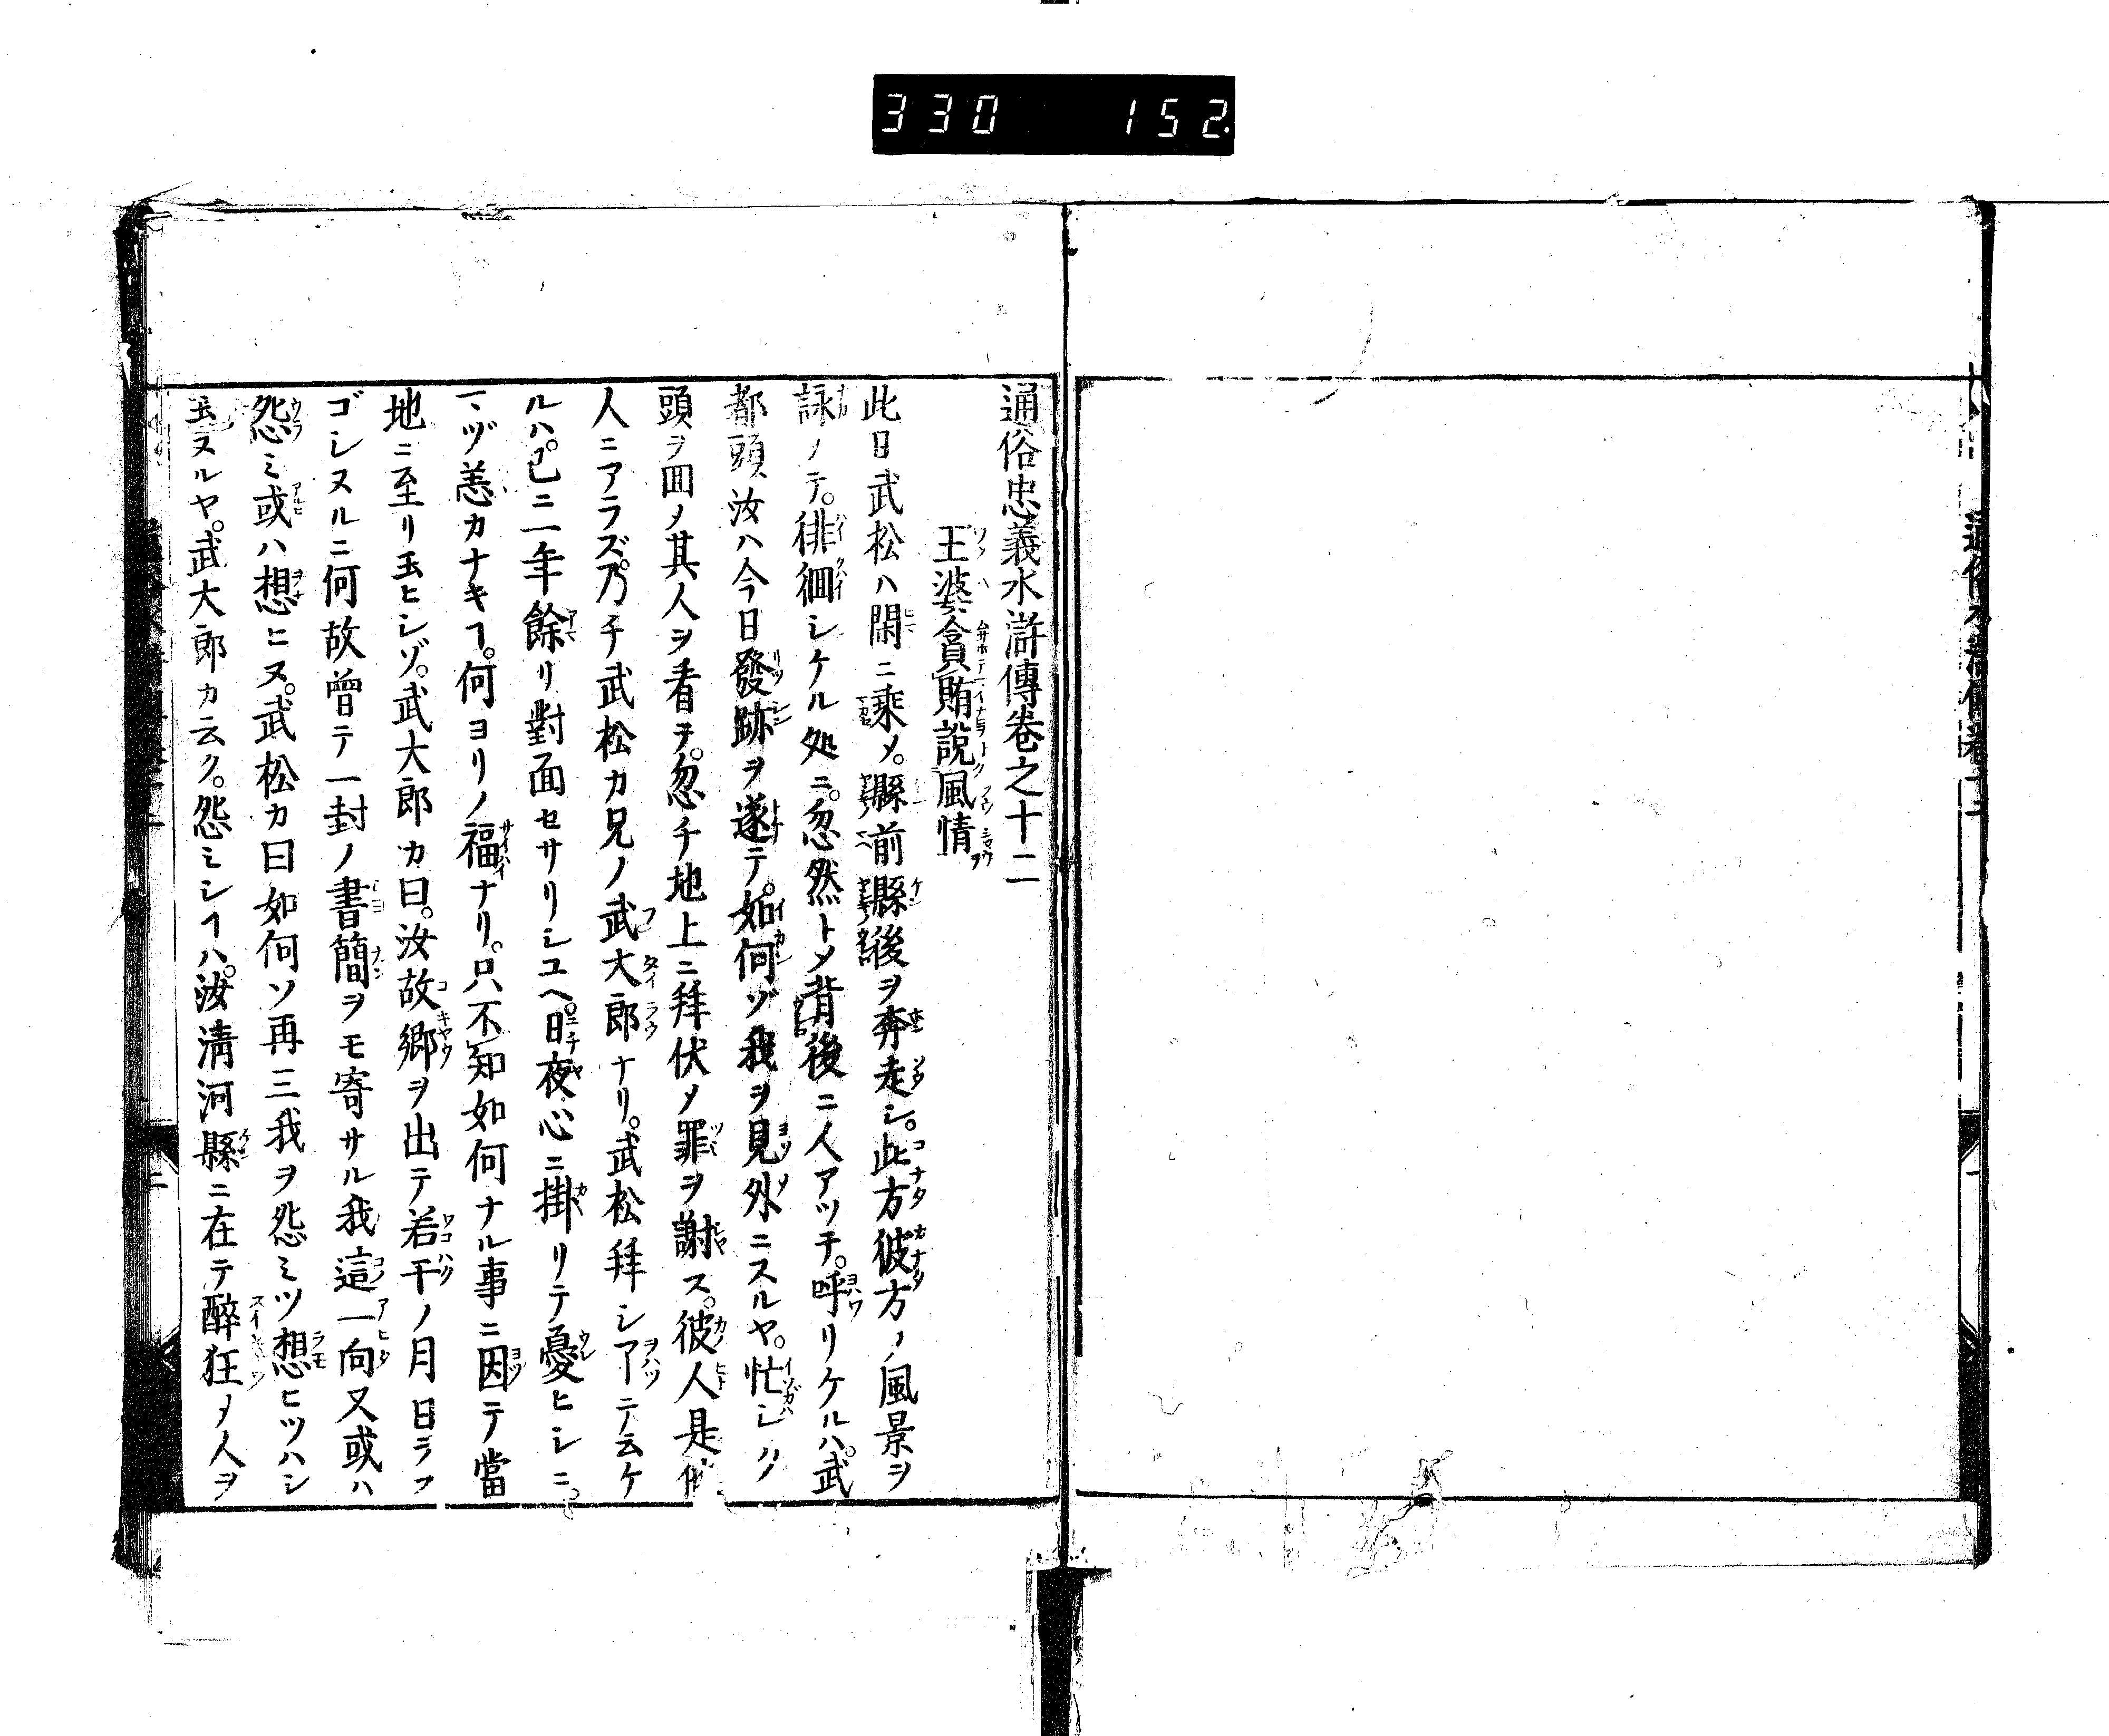 330 152
通俗忠義水滸傳卷之十二
王婆貪賄說風情
此日武松ハ閑ニ乘〆。縣前縣後ヲ奔走シ。此方彼方ノ風景ヲ
詠メテ。徘徊シケル処ニ。忽然ト〆背後ニ人アツテ。呼リケルハ。武
都頭汝ハ今日發跡ヲ遂テ。如何ゾ我ヲ見外ニスルヤ。忙シク
頭ヲ囬〆其人ヲ看テ。忽チ地上ニ拜伏〆罪ヲ謝ス。彼人是
人ニアラズ。乃チ武松カ兄ノ武大郎ナリ。武松拜シ了テ云ケ
ルハ。已ニ一年餘リ對面セサリシユヘ。日夜心ニ掛リテ憂ヒシニ。
ヅ恙カナキヿ。何ヨリノ福ナリ。只不知如何ナル事ニ因テ當
地ニ至リ玉ヒシゾ。武大郎カ曰。汝故郷ヲ出テ若干ノ月日ヲ
ゴシヌルニ何故曾テ一封ノ書簡ヲモ寄サル我這一向又或ハ
怨ミ或ハ想ヒヌ。武松カ曰如何ソ再三我ヲ怨ミツ想ヒツハシ
玉ヌルヤ。武大郎カ云ク。怨ミシヿハ。汝淸河縣ニ在テ醉狂〆人ヲ